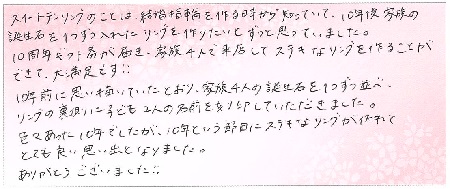 スイートテンリングのことは、結婚指輪を作る時から知っていて、10年後家族の
誕生石を1つずつ入れたリングを作りたいとずっと思っていました。
10周年ギフト券が届き、家族4人で来店してステキなリングを作ることが
できて、大満足です!!
10年前に思い描いていたとおり、家族4人の誕生石を1つずつ並べ、
リングの裏側に子ども2人の名前を刻印していただきました。
色々あった10年でしたが、10年という節目にステキなリングが作れて
とても良い思い出となりました。
ありがとうございました!!